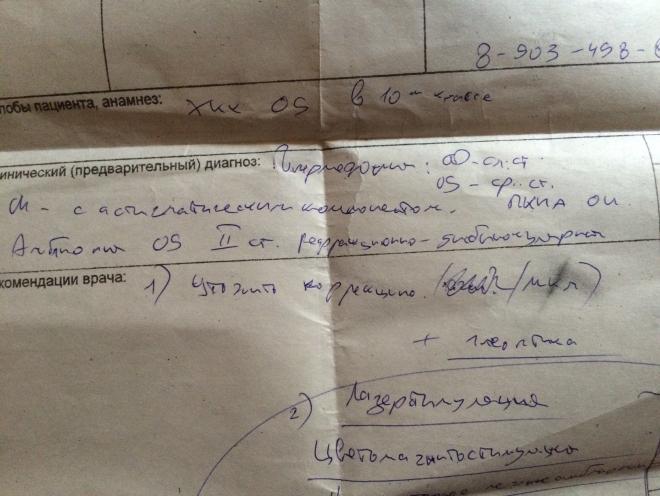 8-903-498-
лобы пациента, анамнез: OS в 10м классе
инический (предварительный) диагноз: Гиперметропия: OD-сл.ст.
OS - ср. ст.
с астигматическим компонентом. ПХИА ОИ.
Амблиопия OS II ст. рефракционно-дисбинокулярная
комендации врача: 1) Уточнить коррекцию (/мкл)
+ плеоптика
2) Лазерстимуляция
Цветомагнитостимуляция